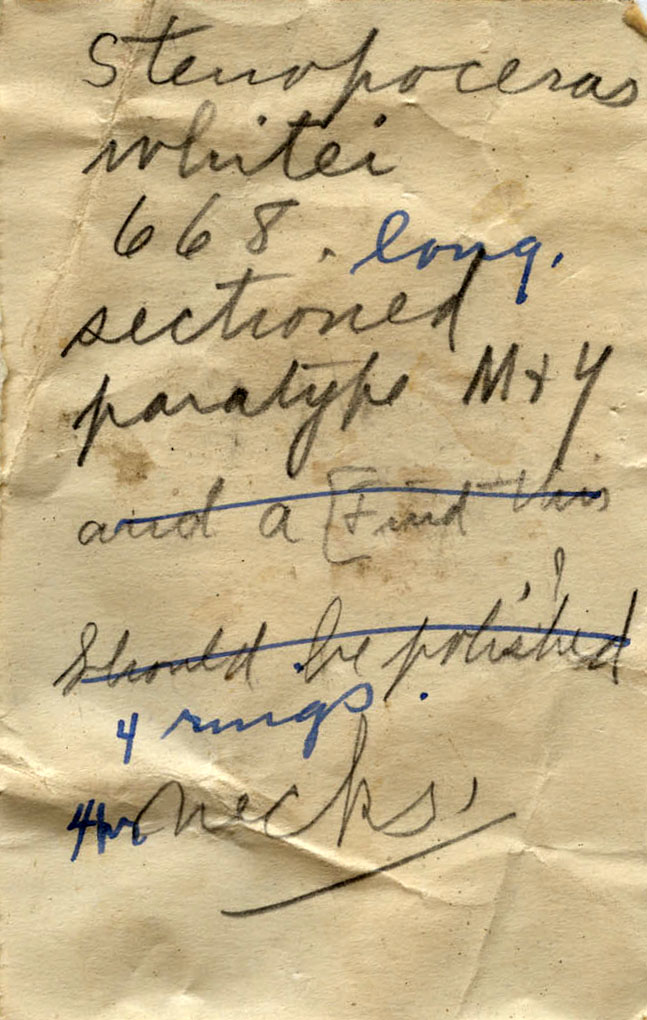 Stenopoceras
whitei
668. long.
sectioned
paratype M+Y
and a [Find this
?
Should be polished
4 rings.
necks.